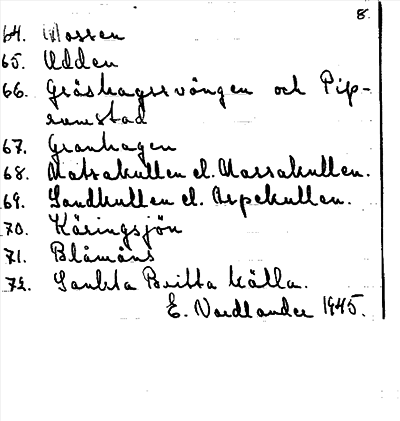 8.
64. Mossen
65. Udden
66. Gråshagsvängen och Pip-
rumstad
67. Granhagen
68. Matsakullen el. Massakullen.
69. Sandkullen el. Aspekullen.
70. Käringsjön
71. Blåmåns
72. Sankta Britta källa.
E. Nordlander 1945.